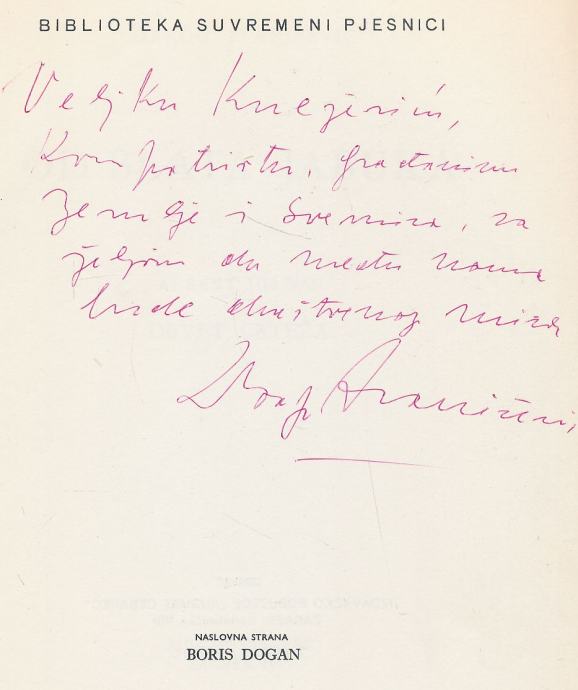 BIBLIOTEKA SUVREMENI PJESNICI
Veljku Kneževiću,
Kompatriotu, građaninu
Zemlje i Svemira, sa
željom da među nama
bude društvenog mira
NASLOVNA STRANA
BORIS DOGAN